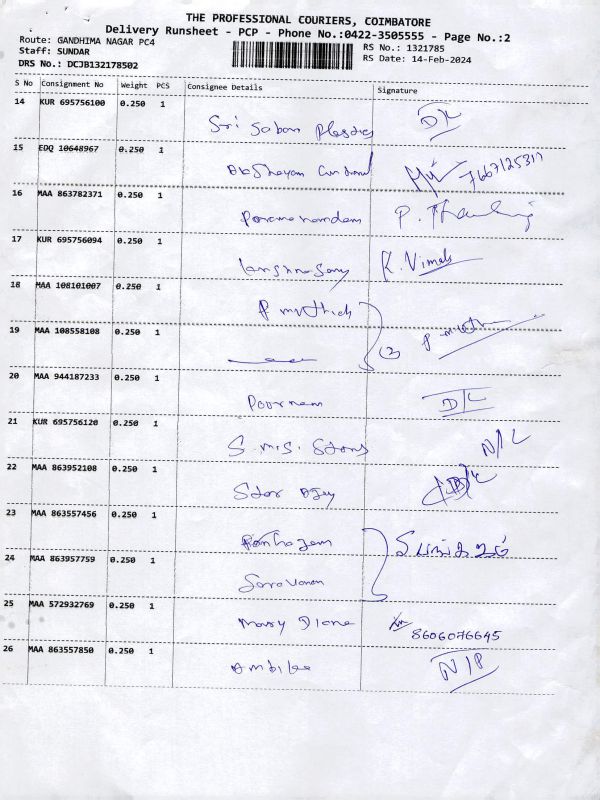 THE PROFESSIONAL COURIERS, COIMBATORE
Delivery Runsheet - PCP - Phone No.:0422-3505555 - Page No.:2
Route: GANDHIMA NAGAR PC4
RS No.: 1321785
Staff: SUNDAR
RS Date: 14-Feb-2024
DRS No.: DCJB132178502
S No Consignment No Weight PCS Consignee Details Signature
14 KUR 695756100 0.250 1
Sri Plastics D/L
15 EDQ 10648967 0.250 1
16 MAA 863782371 0.250 1
P.
17 KUR 695756094 0.250 1
K. Vimala
18 MAA 108101007 0.250 1
P
19 MAA 108558108 0.250 1
(2)
20 MAA 944187233 0.250 1
Poornam D/L
21 KUR 695756120 0.250 1
S.M.S. Stores N/L
22 MAA 863952108 0.250 1
Star D/L
23 MAA 863557456 0.250 1
24 MAA 863957759 0.250 1
Saravanan
25 MAA 572932769 0.250 1
Mary Diana 8606076645
26 MAA 863557850 0.250 1
Ambika N/P